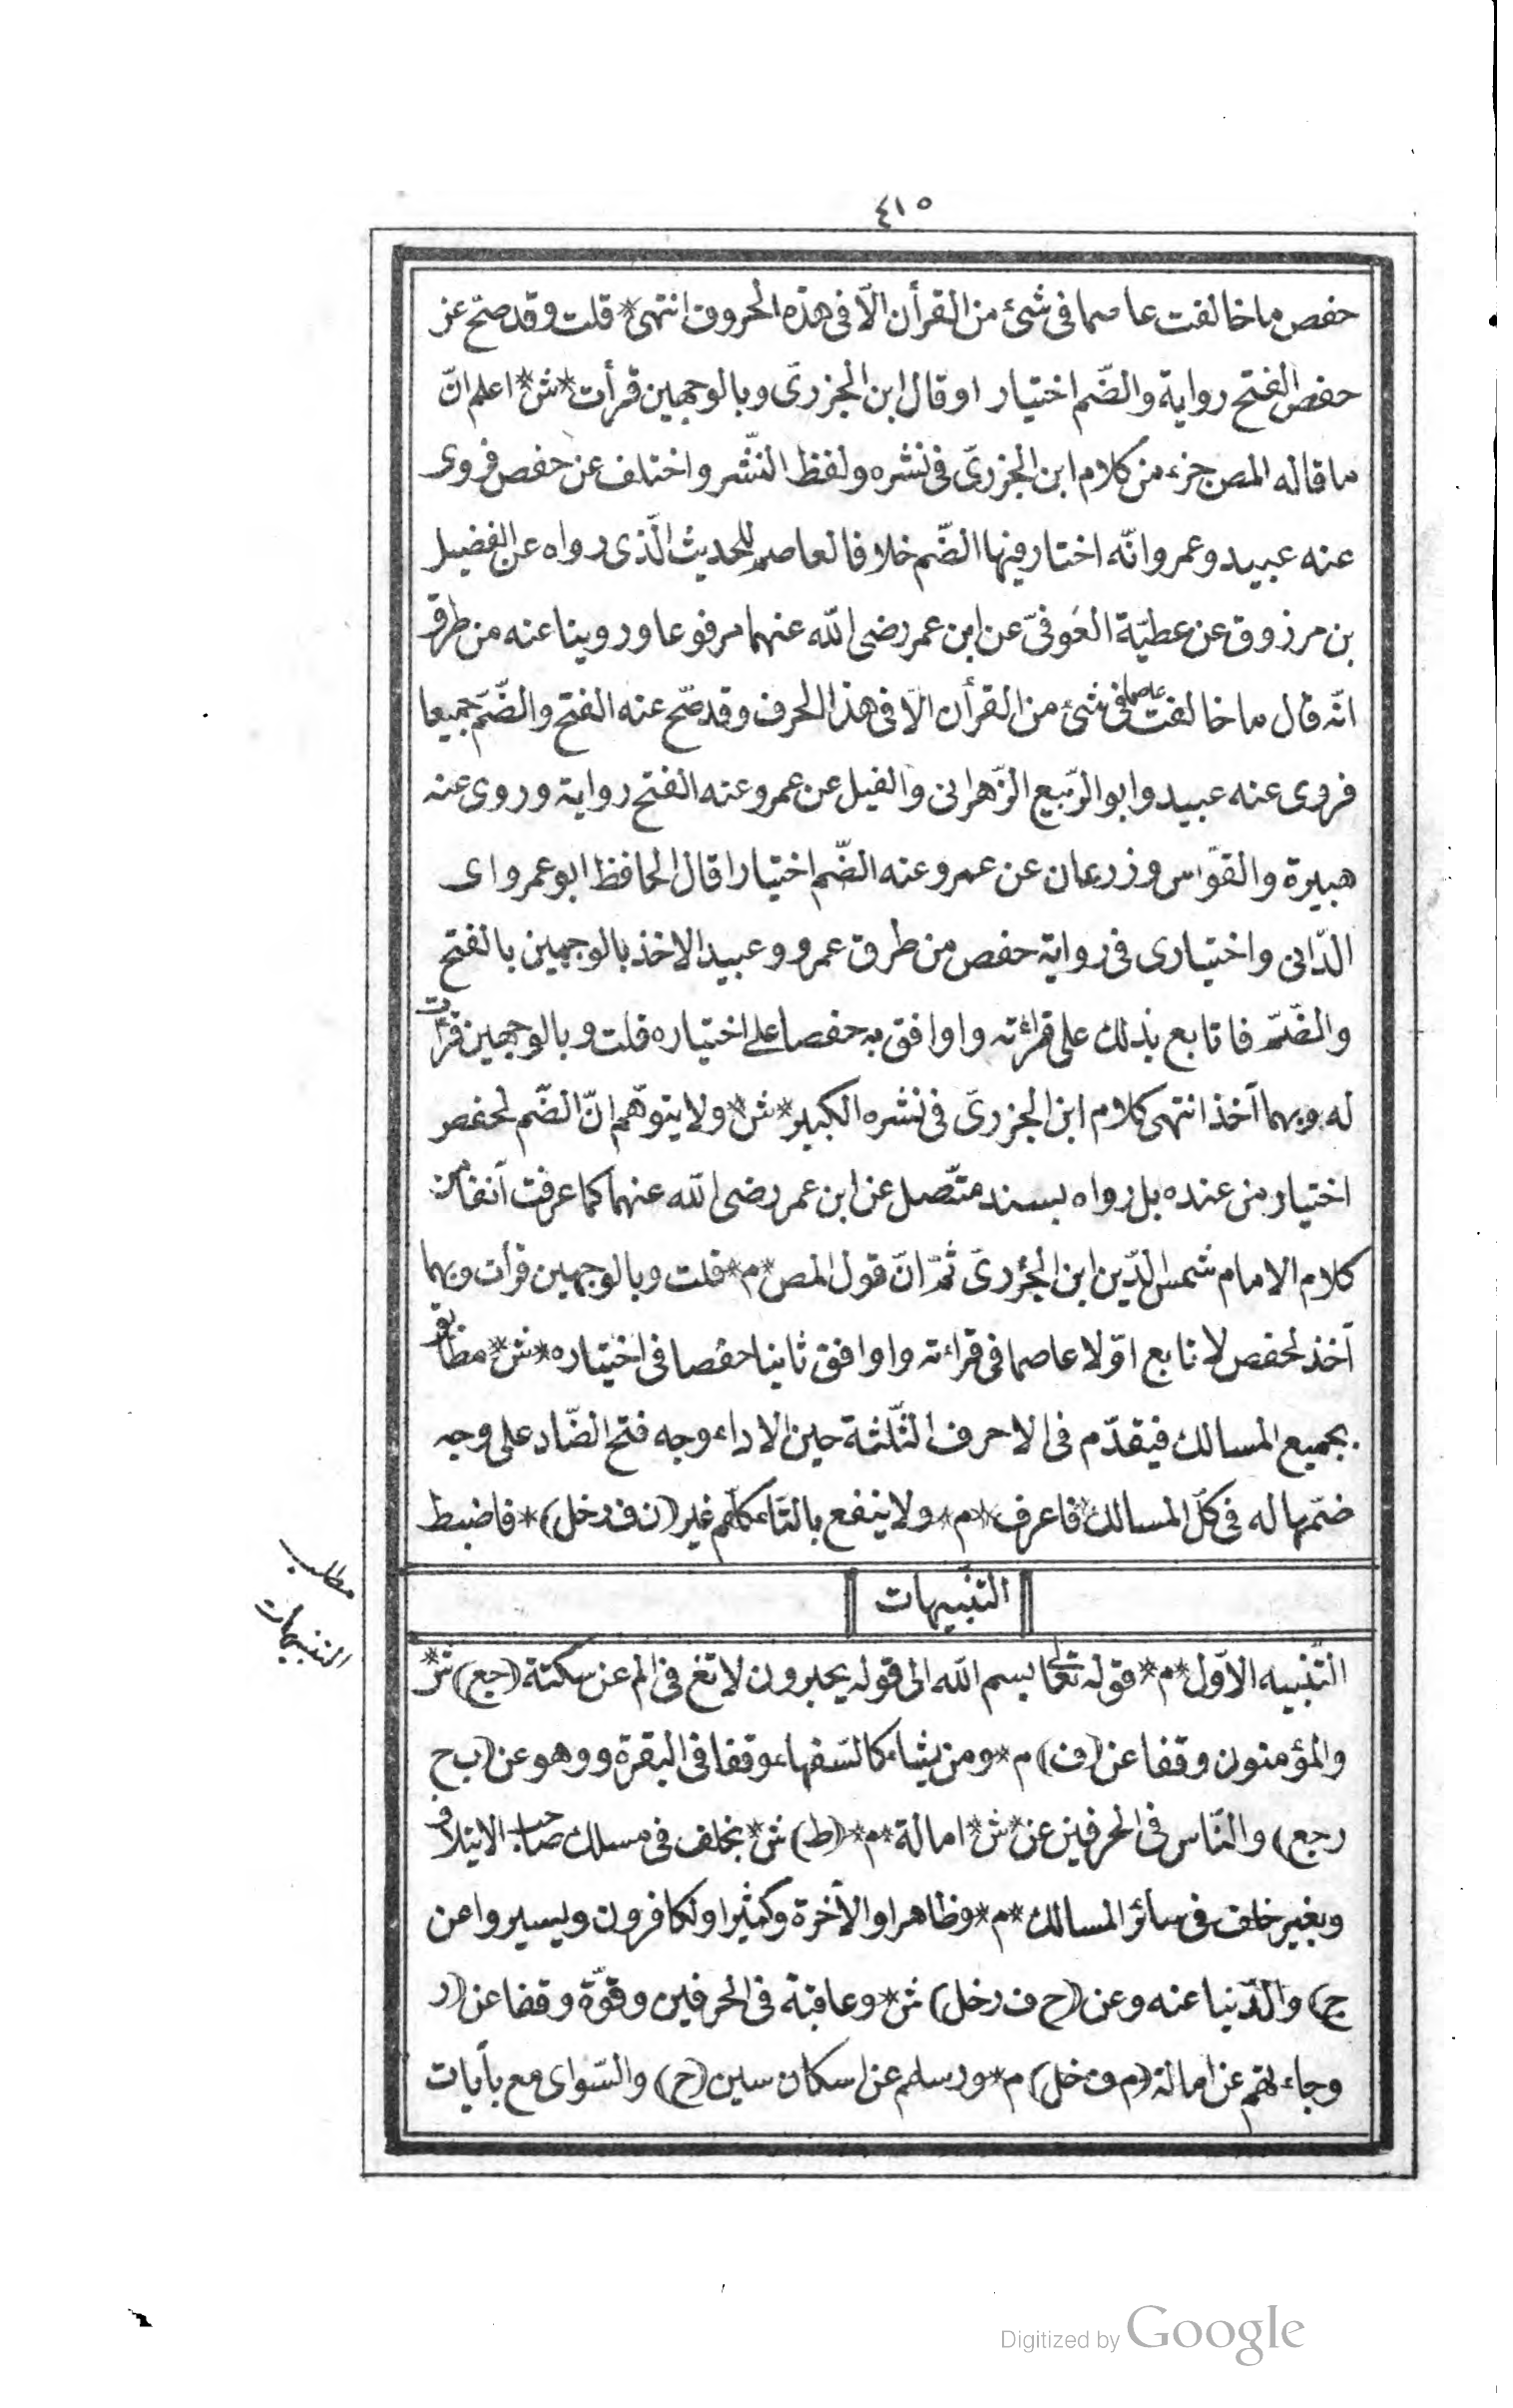 ٤١٥
حفص ما خالفت عاصما فى شئ من القرأن الّا فى هذه الحروف انتهى * قلت وقد صحّ عن
حفص الفتح رواية والضّم اختيار او قال ابن الجزرىّ وبالوجهين قرأت * ش * اعلم انّ
ما قاله المص جزء من كلام ابن الجزرىّ فى نشره ولفظ النّشر واختلف عن حفص فروى
عنه عبيد وعمرو انّه اختار فيها الضّم خلافا لعاصم للحديث الّذى رواه عن الفضيل
بن مرزوق عن عطيّة العَوفىّ عن ابن عمر رضى الله عنهما مرفوعا وروينا عنه من طرق
انّه قال ما خالفت عاصما فى شئ من القرأن الّا فى هذا الحرف وقد صّح عنه الفتح والضّم جميعا
فروى عنه عبيد وابو الرّبيع الزّهرانى والفيل عن عمرو عنه الفتح رواية وروى عنه
هبيرة والقوّاس وزرعان عن عمرو عنه الضّم اختيارا قال الحافظ ابو عمرو اى
الدّانى واختيارى فى رواية حفص من طرق عمرو وعبيد الاخذ بالوجهين بالفتح
والضّم فاتابع بذلك على قرائته واوافق به حفصا على اختياره قلت وبالوجهين قرأت
له وبهما آخذ انتهى كلام ابن الجزرىّ فى نشره الكبير * ش * ولا يتوهّم انّ الضّم لحفص
اختيار من عنده بل رواه بسند متّصل عن ابن عمر رضى الله عنهما كما عرفت آنفا من
كلام الامام شمس الدّين ابن الجزرىّ ثمّ انّ قول المص * م * قلت وبالوجهين قرأت وبهما
آخذ لحفص لاتابع اوّلا عاصما فى قراءته واوافق ثانيا حفصا فى اختياره * ش * مطابق
بجميع المسالك فيقدّم فى الاحرف الثّلثة حين الاداء وجه فتح الضّاد على وجه
ضمّها له فى كلّ المسالك فاعرف * م * ولا ينفع بالتّاء كلّهم غير (ن ف ر خل) * فاضبط
التنبيهات
مطلب
التنبيهات
التّنبيه الاوّل * م * قوله تعالى بسم الله الى قوله يحبرون لا تغ فى الم عن سكتة (جع) ش *
والمؤمنون وقفا عن (ف) م * ومن يشاء كالسّفهاء وقفا فى البقرة و وهو عن (ب ح
ر جع) والنّاس فى الحرفين عن * ش * امالة * م * (ط) ش * بخلف فى مسلك صاحب الايتلاف
وبغير خلف فى سائر المسالك * م * وظاهرا والآخرة وكثيرا ولكافرون ويسيروا عن
ج) والدّنيا عنه وعن (ح ف ر خل) ش * وعاقبة فى الحرفين وقوّة وقفا عن (ر
وجاءتهم عن امالة (م ف خل) م * ورسلهم عن اسكان سين (ح) والسّواى مع بآيات
Digitized by Google